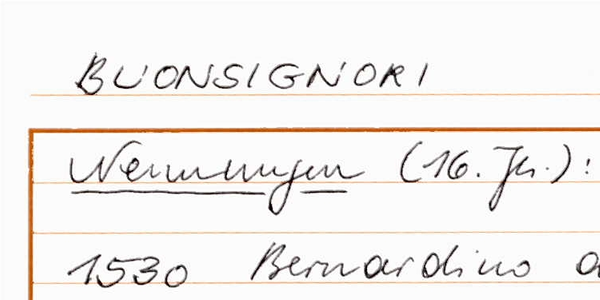 BUONSIGNORI
Nennungen (16. Jh.):
1530 Bernardino